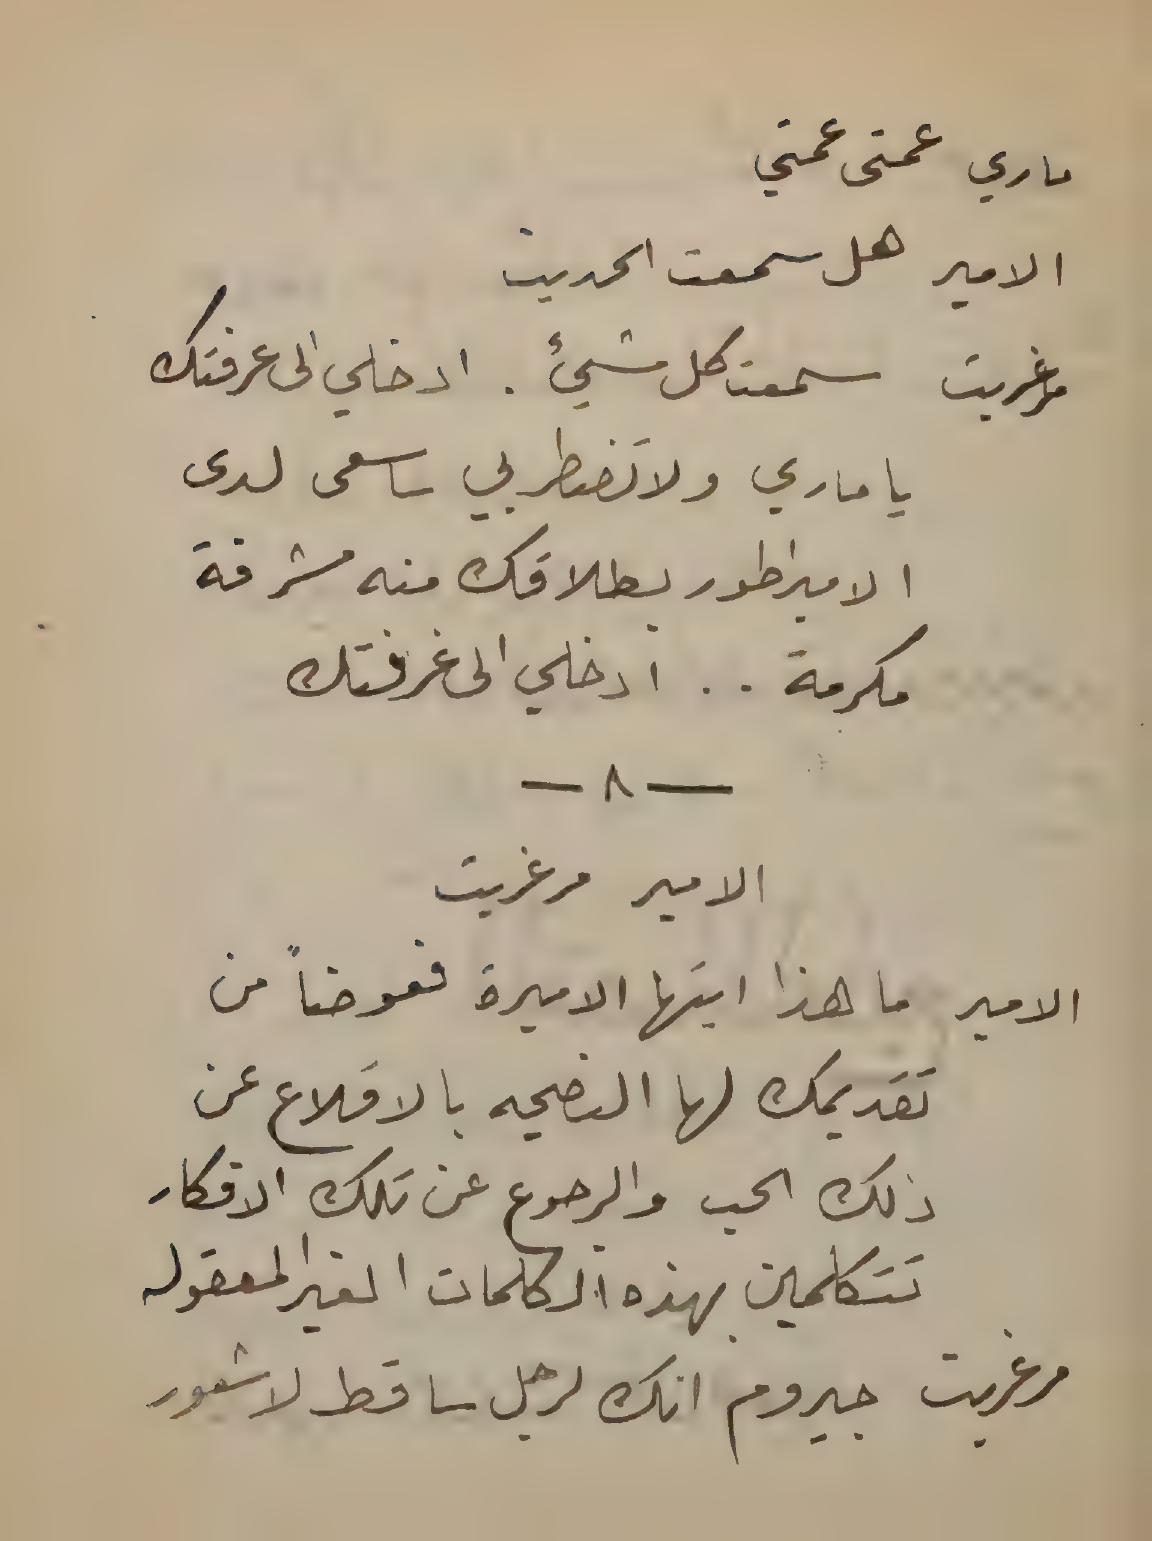 ماري عمتى عمتي
الامير هل سمعت الحديث
مرغريت سمعت كل شيئ . ادخلي الى غرفتك
يا ماري ولا تضطربي ساسعى لدى
الامبراطور بطلاقك منه مشرفة
مكرمة . . ادخلي الى غرفتك
— ٨ —
الامير مرغريت
الامير ما هذا ايتها الاميرة فعوضاً من
تقديمك لها النصيحه بالاقلاع عن
ذلك الحب والرجوع عن تلك الافكار
تتكلمين بهذه الكلمات الغير المعقوله
مرغريت جيروم انك لرجل ساقط لا شعور